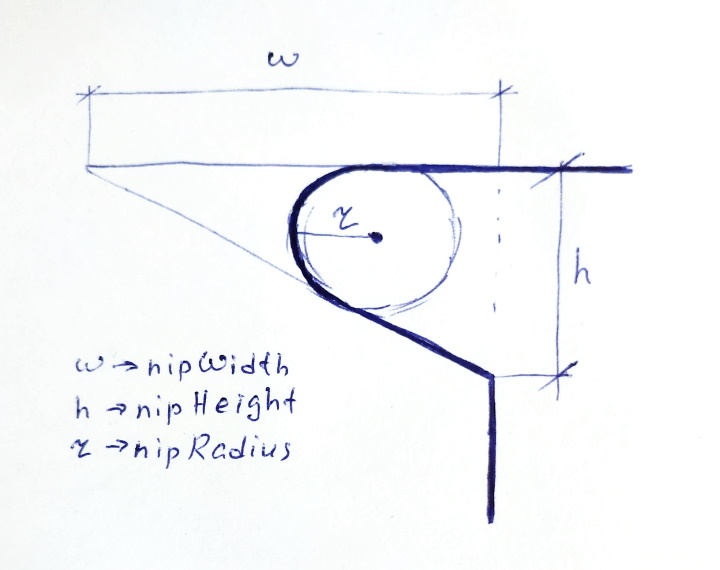 w
r
h
w → nipWidth
h → nipHeight
r → nipRadius